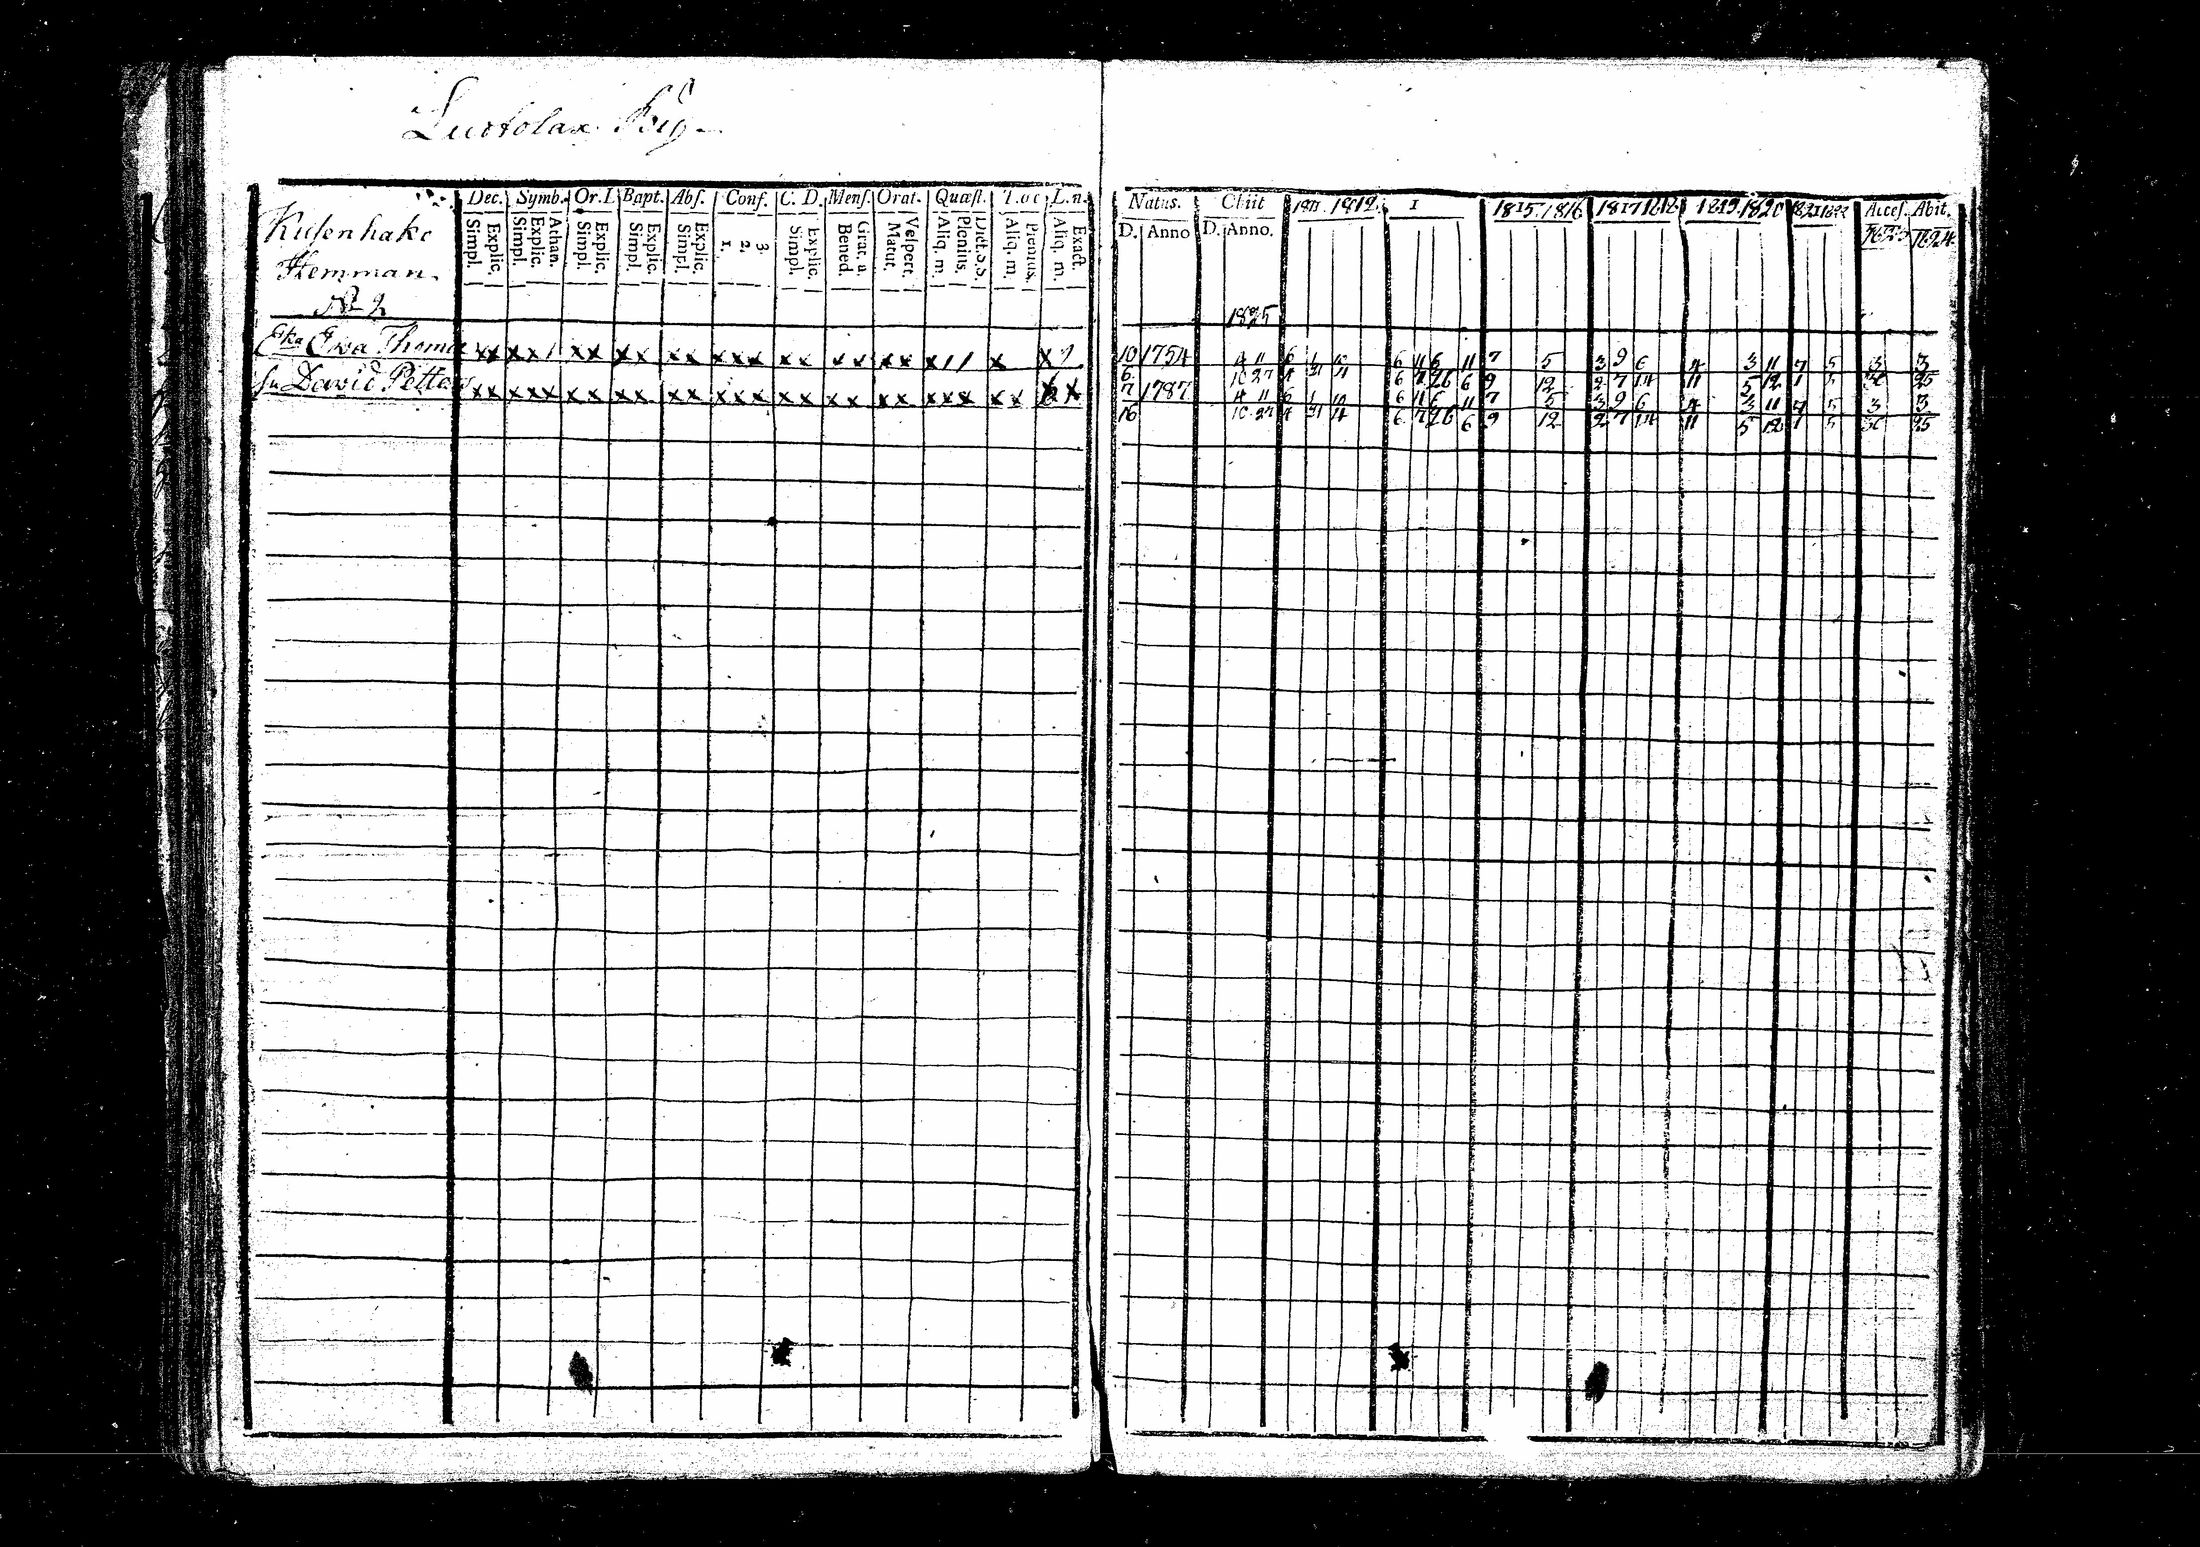 Luotolax By
Dec. Symb. Or. D. Bapt. Abs. Conf. C. D. Mens. Orat. Quæst. Loc L. n.
Simpl. Explic. Simpl. Explic. Athan. Simpl. Explic. Simpl. Explic. Simpl. Explic. 1. 2. 3. Simpl. Explic. Bened. Grat. a. Matut. Vespert. Aliq. m. Plenius. Dict. S. S. Aliq. m. Plenius. Aliq. m. Exact.
Hemman
No 2
Eka Ewa Thomæ x x x x 1 x x x x x x x x x x x x x x x x 1 1 x x
Sn David Petter x x x x x x x x x x x x x x x x x x x x x x x x x x x
Natus. Obiit 1811. 1812. 1 1815. 1816 1817 1818 1819. 1820 1821 1822 Acces. Abit.
D. Anno D. Anno. 1823 1824
1825
10 1754 4 11 6 6 11 6 11 7 5 3 9 6 4 3 11 7 5 3 3
6 10 27 4 31 11 6 7 26 6 9 12 2 7 14 11 5 12 1 5 30 25
7 1787 4 11 6 6 11 6 11 7 5 3 9 6 4 3 11 7 5 3 3
16 10 27 4 31 4 6 7 26 6 9 12 2 7 14 11 5 12 1 5 30 25